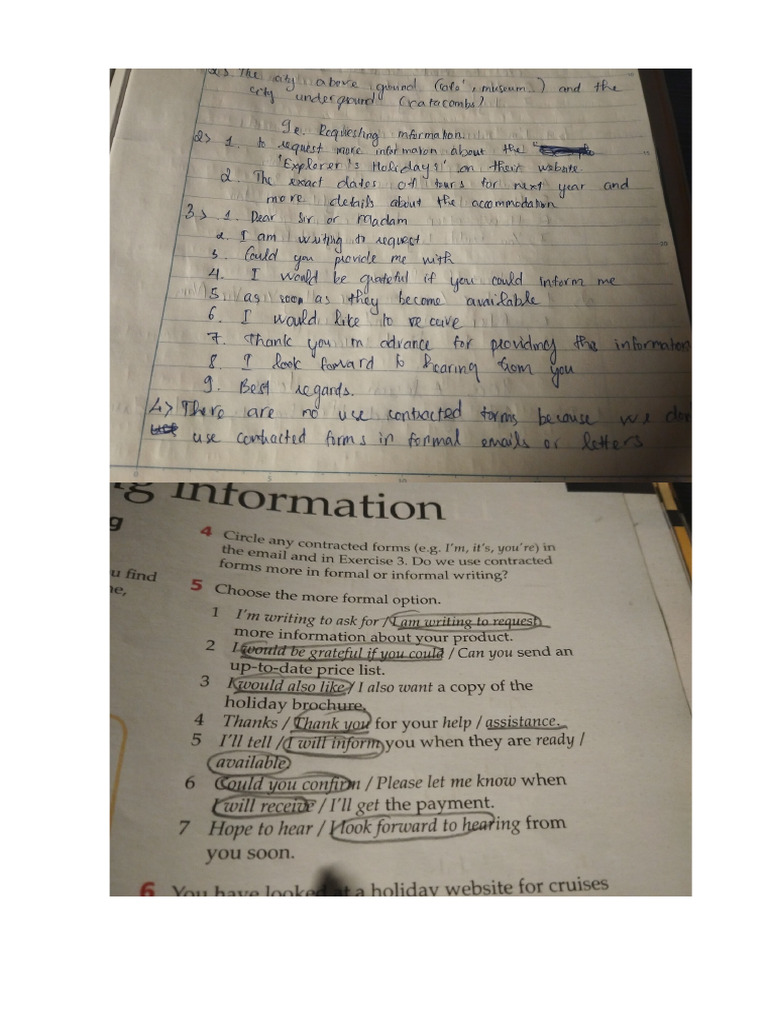 2> The city above ground (cafe's, museum..) and the
city underground (Cratacombs)
9e. Requesting information.
2> 1. to request more information about the "
'Explorer's Holidays' on their website
2. The exact dates of tours for next year and
more details about the accommodation
3.> 1. Dear Sir or Madam
2. I am writing to request
3. Could you provide me with
4. I would be grateful if you could inform me
5. as soon as they become available
6. I would like to receive
7. Thank you in advance for providing the information
8. I look forward to hearing from you
9. Best regards.
4> There are no use contracted forms because we don
use contracted forms in formal emails or letters
ng information
g
4 Circle any contracted forms (e.g. I'm, it's, you're) in
the email and in Exercise 3. Do we use contracted
forms more in formal or informal writing?
u find
ne,
5 Choose the more formal option.
1 I'm writing to ask for / I am writing to request
more information about your product.
2 I would be grateful if you could / Can you send an
up-to-date price list.
3 I would also like / I also want a copy of the
holiday brochure.
4 Thanks / Thank you for your help / assistance.
5 I'll tell / I will inform you when they are ready /
available
6 Could you confirm / Please let me know when
I will receive / I'll get the payment.
7 Hope to hear / I look forward to hearing from
you soon.
6 You have looked at a holiday website for cruises